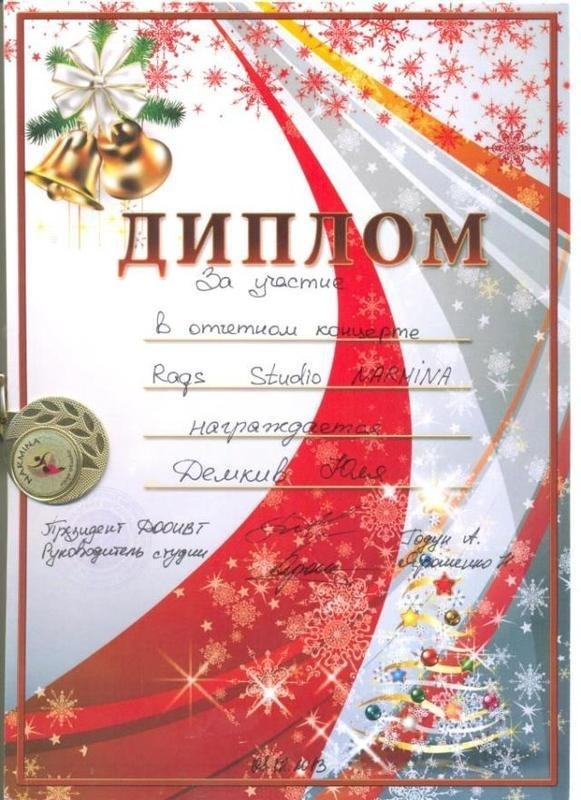 ДИПЛОМ
За участие
в отчетном концерте
Raqs Studio NARMINA
награждается
Демкив Юля
Прзидент ДООИВТ Годун А.
Руководитель студии Ярошенко Н
NARMINA